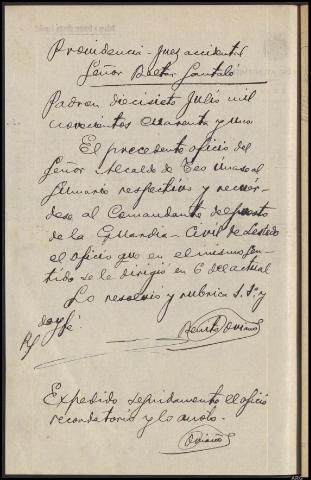 Providencia - Juez accidental
Señor Baltar Santaló
Padron diecisiete Julio mil
novecientos cuarenta y uno
El precedente oficio del
Señor Alcalde de Teo únase al
sumario respectivo y recuér-
dese al Comandante de puesto
de la Guardia - Civil de Lestedo
el oficio que en el mismo sen-
tido se le dirigió en 6 del actual
Lo resolvió y rubrica S. Sª. y
doy fé.
Expedido seguidamente el oficio
recordatorio y lo anoto.